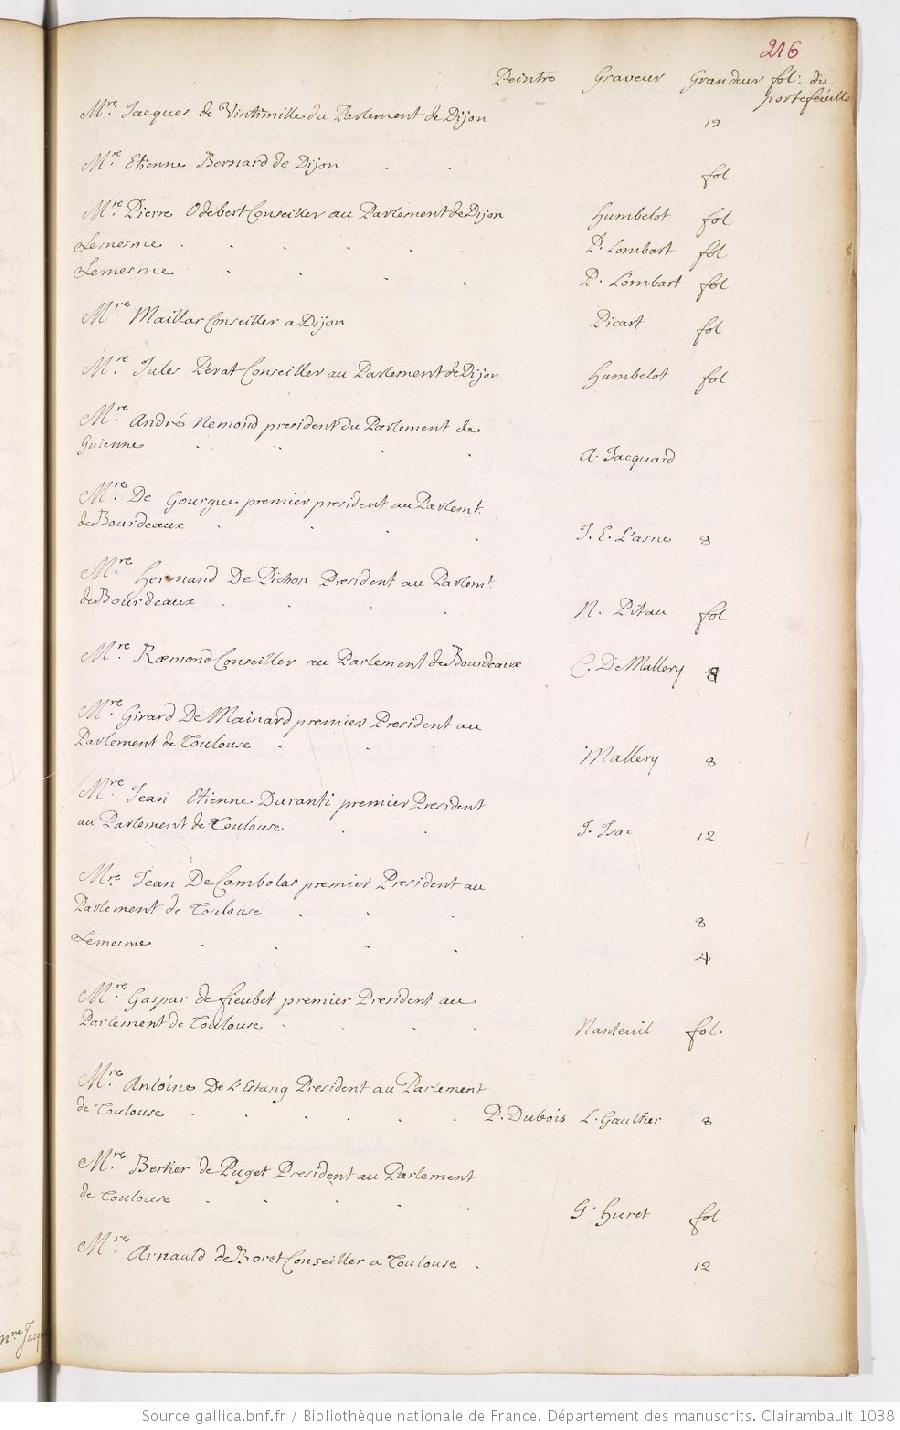 216
Peintre Graveur Grandeur fol: du
portefeuille
Mre. Jacques de Vintimille du Parlement de Dijon 12
Mre. Etienne Bernard de Dijon fol
Mre. Pierre Odebert Conseiller au Parlement de Dijon Humbelot fol
Lemesme P. Lombart fol
Lemesme P. Lombart fol
Mre. Maillar Conseiller a Dijon Picart fol
Mre. Jules Perat Conseiller au Parlement de Dijon Humbelot fol
Mre. André Nemond president du Parlement de
Guienne A. Jacquard
Mre. De Gourgue premier president au Parlemt.
de Bourdeaux J. E. L'asne 8
Mre. Bernard De Pichon President au Parlemt.
de Bourdeaux N. Pitau fol
Mre. Ræmond Conseiller au Parlement de Bourdeaux C. De Mallery 8
Mre. Girard De Mainard premier President au
Parlement de Toulouse Mallery 8
Mre. Jean Etienne Duranti premier President
au Parlement de Toulouse. J. Isac 12
Mre. Jean De Cambolas premier President au
Parlement de Toulouse 8
Lemesme 4
Mre. Gaspar de fieubet premier President au
Parlement de Toulouse Nanteuil fol.
Mre. Antoine De L'Estang President au Parlement
de Toulouse P. Dubois L. Gaultier 8
Mre. Bertier de Puget President au Parlement
de Toulouse G. Huret fol
Mre. Arnauld de Boret Conseiller a Toulouse 12
Source gallica.bnf.fr / Bibliothèque nationale de France. Département des manuscrits. Clairambault 1038